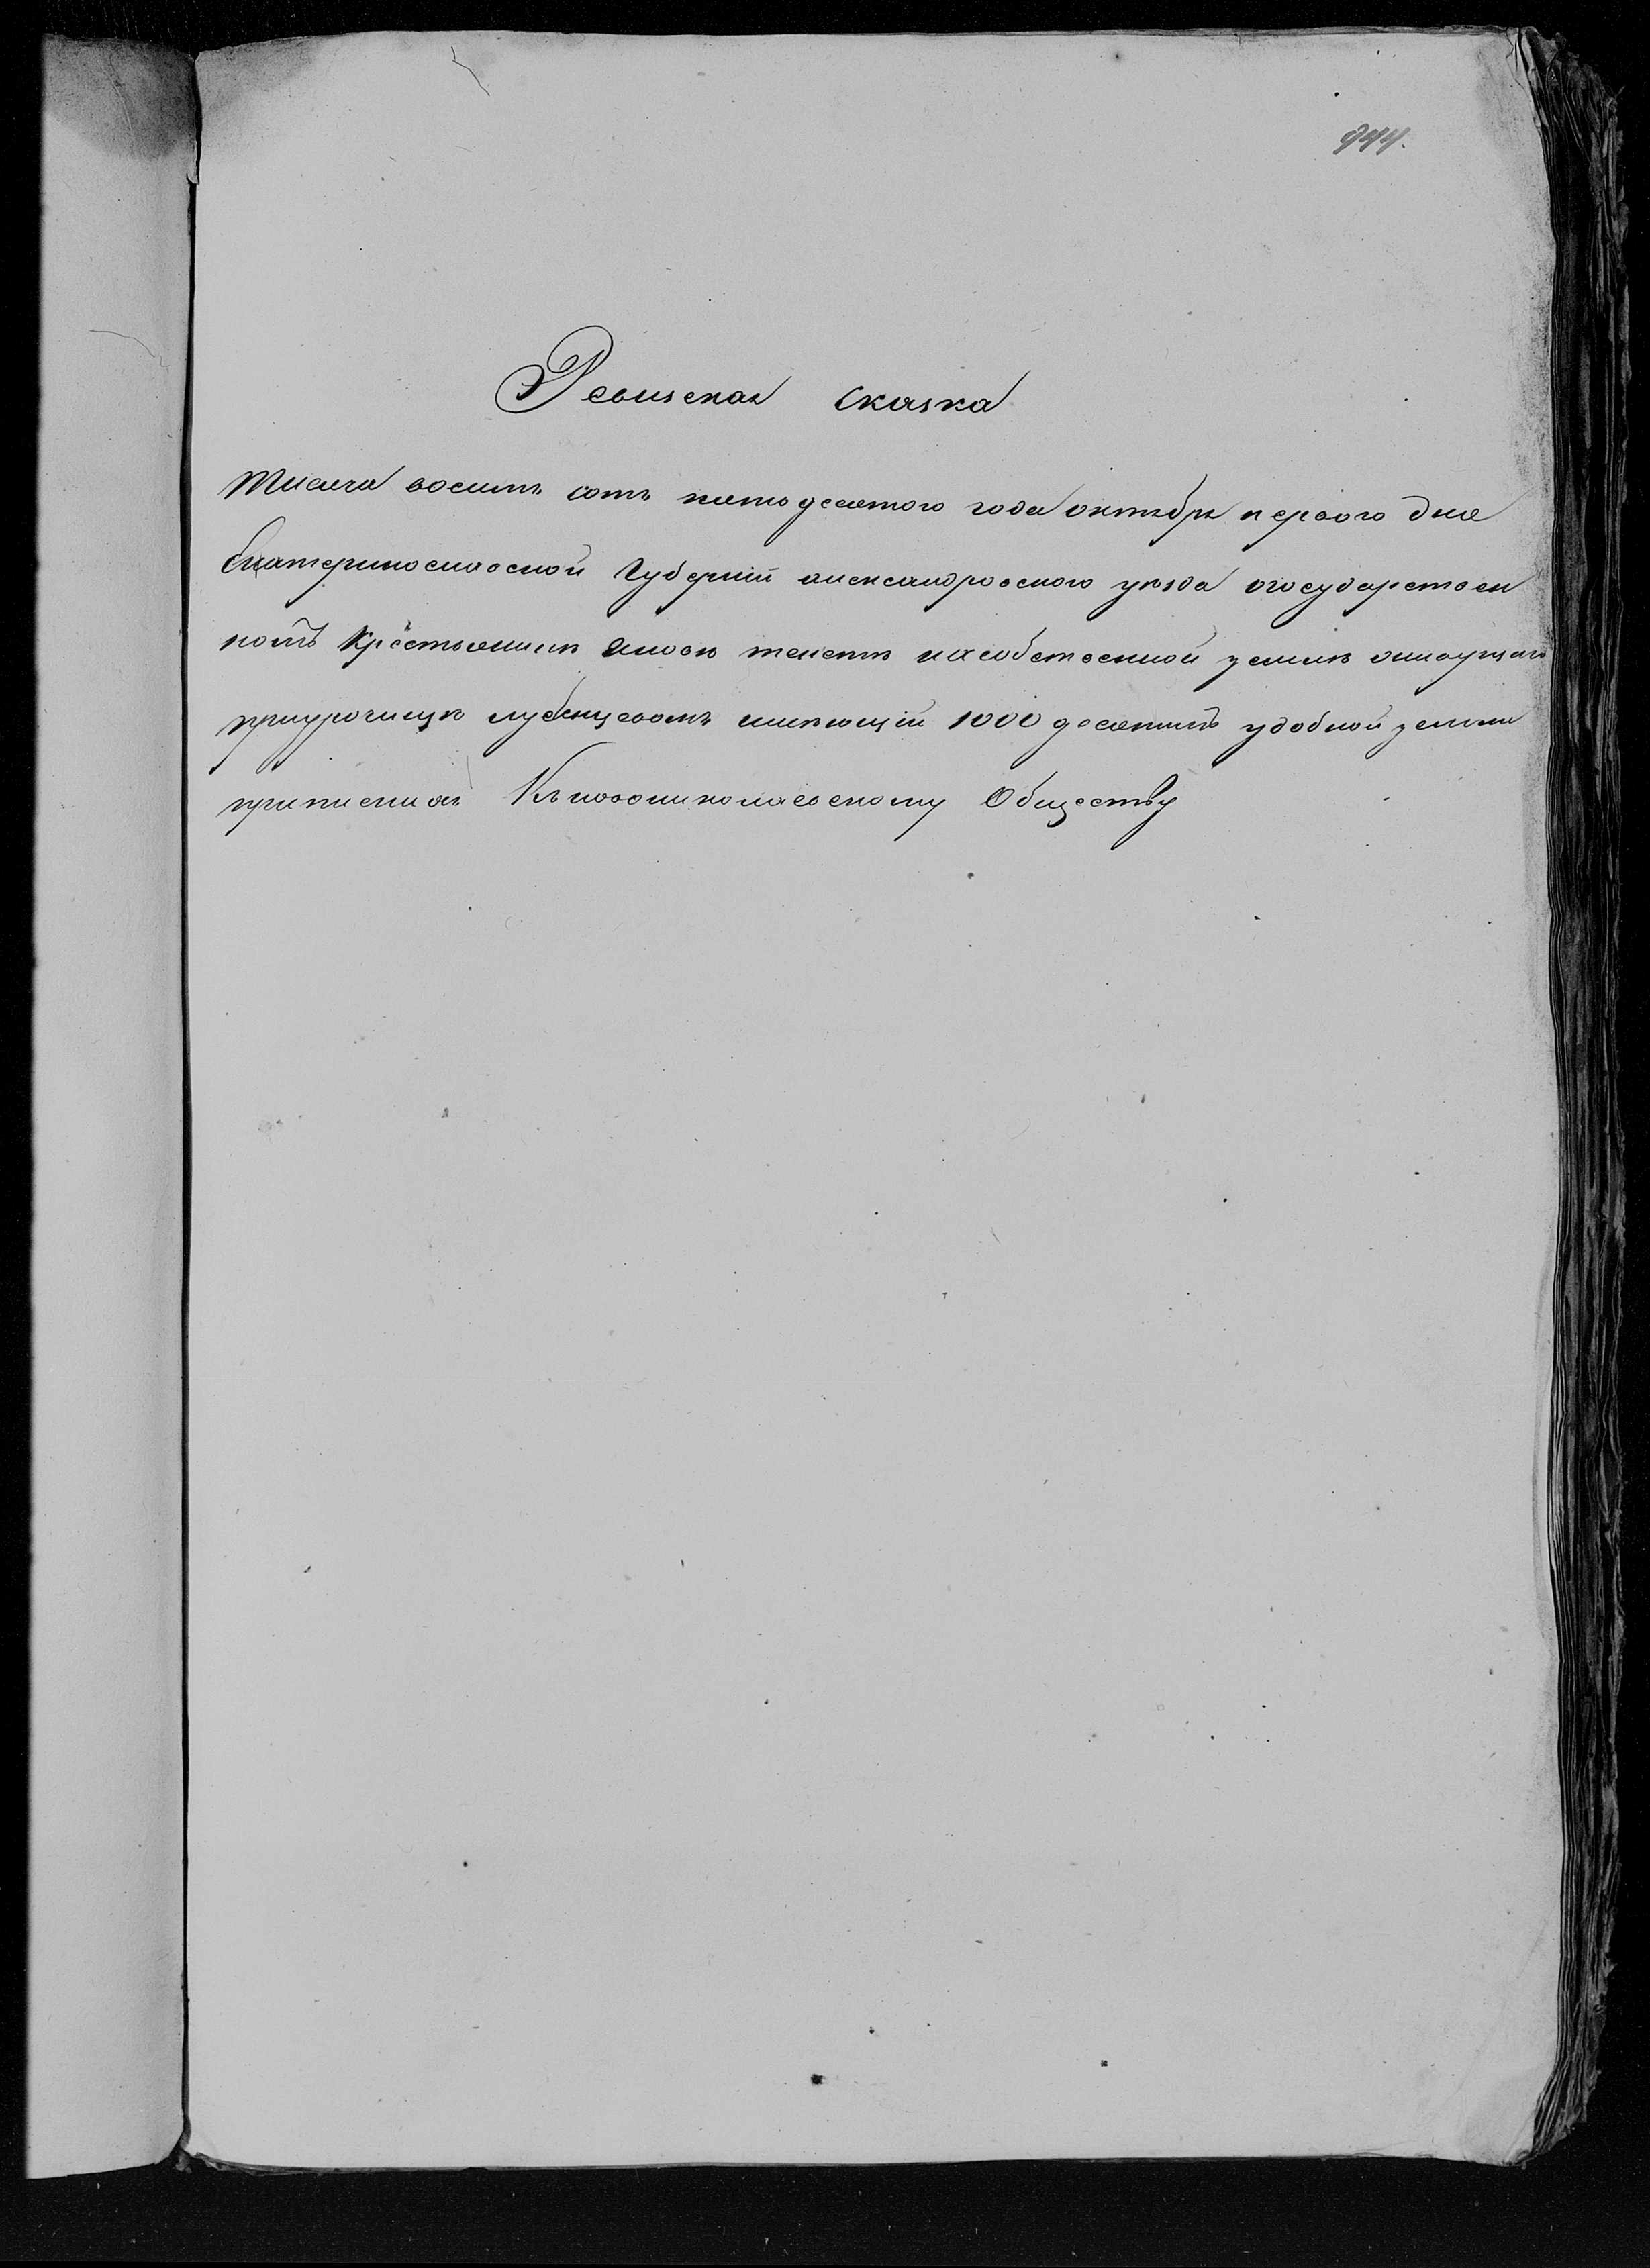 944.
Ревизская сказка
Тисеча восимъ сотъ пятодесятого года октября первого дня
Екатеринославской Губернии александровского уезда огосударствен
номъ Крестьянине насобственной земле
приурочище имеющий 1000 десятинъ удобной земли
приписанъ Къ новониколаевскому Обществу